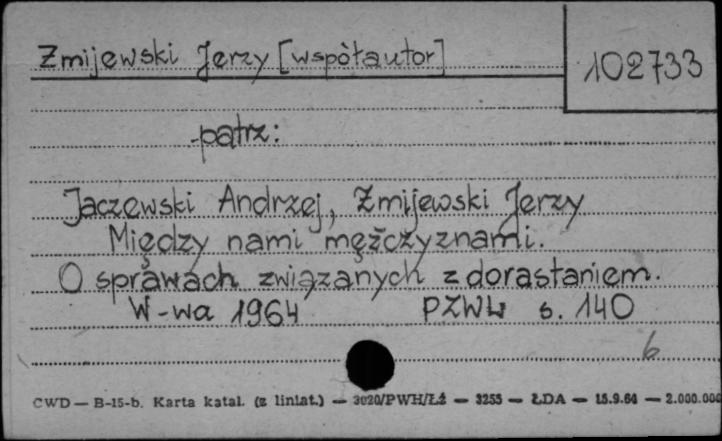 Żmijewski Jerzy [współautor]
102733
patrz:
Jaczewski Andrzej, Żmijewski Jerzy
Między nami mężczyznami.
O sprawach związanych z dorastaniem.
W-wa 1964 PZWL s. 140
6
CWD — B-15-b. Karta katal. (z liniat.) — 3020/PWH/Łź — 3255 — ŁDA — 15.9.64 — 2.000.000